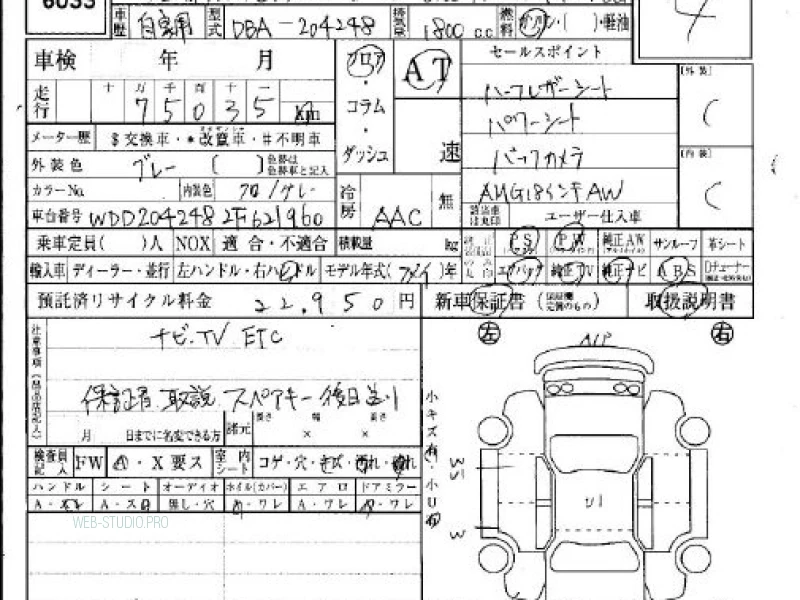 6033
車歴 自家用 型式 DBA-204248 排気量 1800 cc 燃料 ガソリン・( )・軽油
4
車検 年 月 フロア・コラム・ダッシュ AT 速 セールスポイント
走行 十 万 千 百 十 一
7 5 0 3 5 km
ハーフレザーシート
パワーシート
バックカメラ
AMG18インチAW
[外装] C
[内装] C
メーター歴 $交換車・*改竄車・#不明車
外装色 グレー ( ) 色替は色替車と記入
カラーNo. 内装色 クロ/グレー 冷房 AAC 無
車台番号 WDD2042482F621960 該当車は丸印 ユーザー仕入車
乗車定員( )人 NOX 適合・不適合 積載量 kg PS PW 純正AW サンルーフ 革シート
輸入車 ディーラー・並行 左ハンドル・右ハンドル モデル年式( )年 エアバッグ 純正TV 純正ナビ ABS
預託済リサイクル料金 22,950円 新車保証書 取扱説明書
ナビ.TV ETC
左 右
保証書 取説 スペアキー後日送り
月 日までに名変できる方 諸元 長さ × 幅 × 高さ
検査員記入 FW A・X要ス 室内シート コゲ・穴・キズ・汚れ・破れ
小キズ有・小U有
ハンドル シート オーディオ ホイル(カバー) エアロ ドアミラー
A・スレ A・スレ 無し・穴 A・ワレ A・ワレ A・ワレ
W
U1
W
WEB-STUDIO.PRO